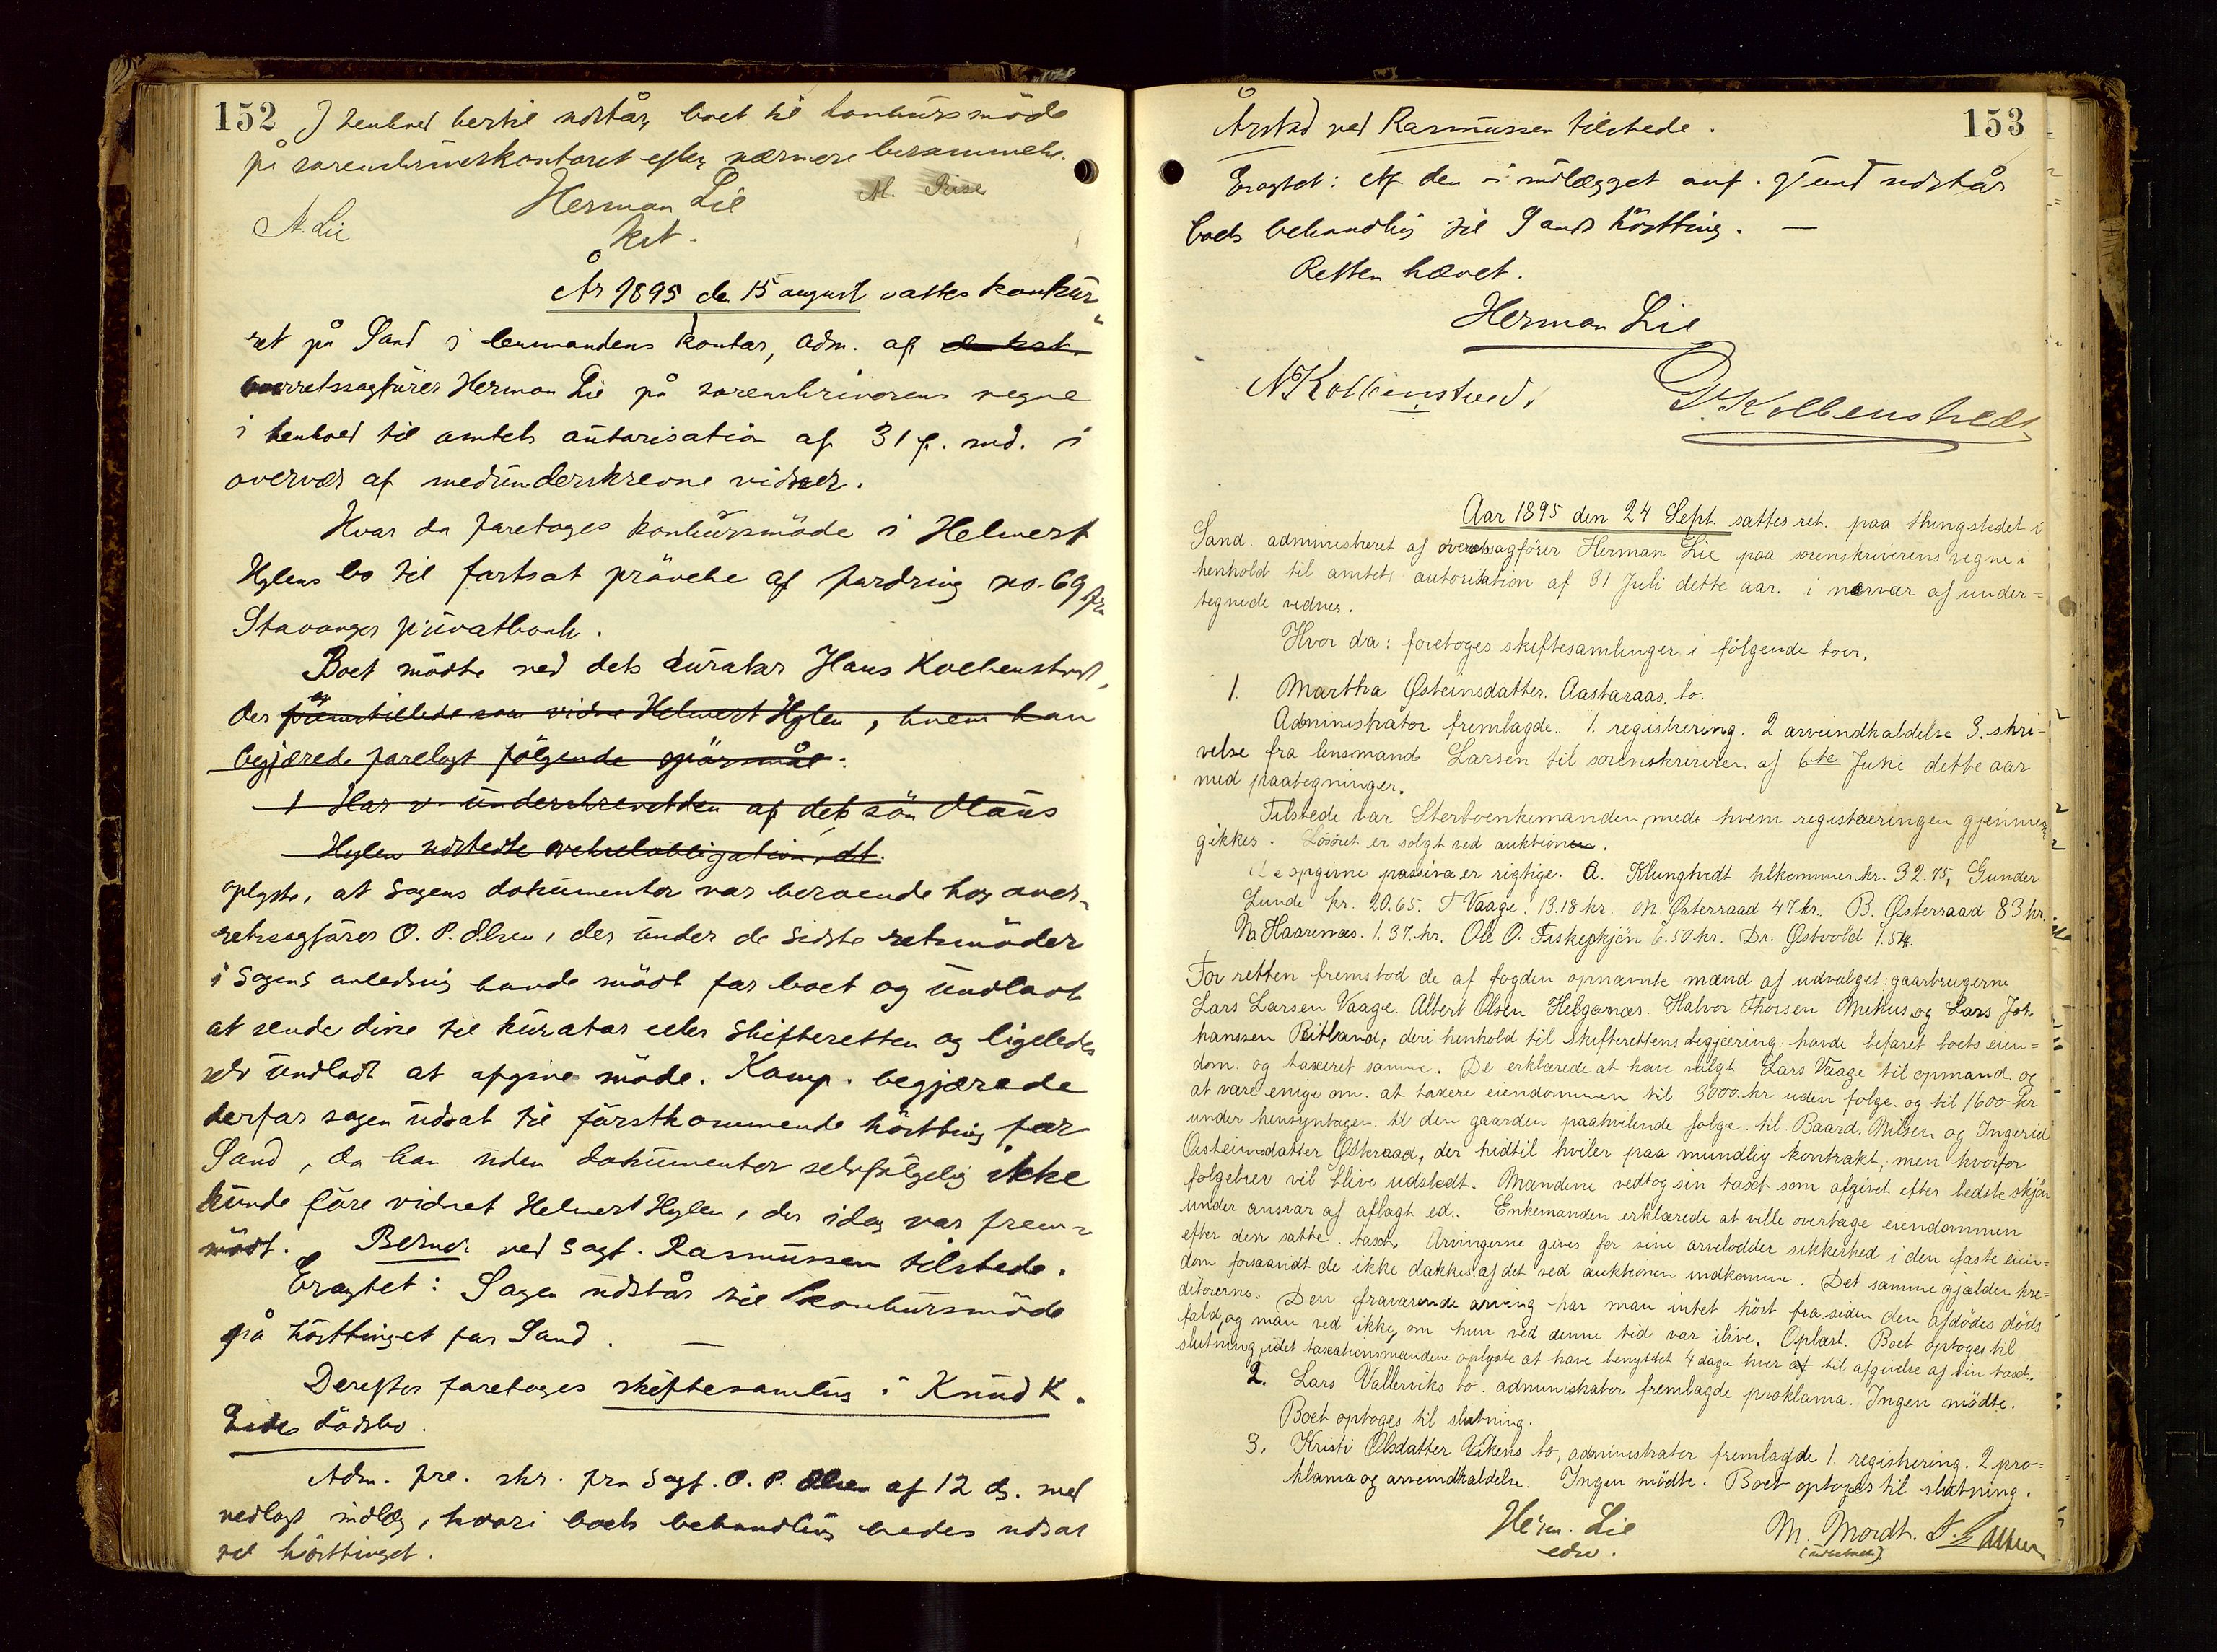 152 I henhold hertil udstår boet til konkursmöde
på sorenskriverkontoret efter nærmere berammelse.
Herman Lie M. Riise
A. Lie kst.
År 1895 den 15 august sattes konkurs-
ret på Sand i lensmandens kontor, adm. af den kst.
overretssagförer Herman Lie på sorenskriverens vegne
i henhold til amtets autorisation af 31 f. md. i
overvær af medunderskrevne vidner.
Hvor da foretoges konkursmöde i Helmert
Hylens bo til fortsat prövelse af fordring no. 69 fra
Stavanger privatbank.
Boet mödte ved dets kurator Hans Kolbenstvedt,
der fremstillede som vidne Helmert Hylen, hvem han
begjærede forelagt fölgende spörsmål:
1 Har v. underskrevet den af dets sön Olaus
Hylen udstedte vekselobligation, dt.
oplyste, at sagens dokumenter var beroende hos over-
retssagförer O. P. Olsen, der under de sidste retsmöder
i sagens anledning havde mödt for boet og undladt
at sende disse til kurator eller skifteretten og ligeledes
selv undladt at afgive möde. Komp. begjærede
derfor sagen udsat til förstkommende höstting for
Sand, da han uden dokumenter selvfölgelig ikke
kunde före vidnet Helmert Hylen, der idag var frem-
mödt. ved sagf. Rasmussen tilstede.
Eragtet: Sagen udstår til konkursmöde
på hösttinget for Sand.
Derefter foretoges skiftesamling i Knud K.
Eides dödsbo.
Adm. fre. skr. fra sagf. O. P. Olsen af 12 ds. med
vedlagt indlæg, hvori boets behandling bedes udsat
til hösttinget.
Årstad ved Rasmussen tilstede. 153
Eragtet: Af den i indlægget anf. grund udstår
boets behandling til Sands höstting. —
Retten hævet.
Herman Lie
N Kolbenstvedt. D. Kolbenstvedt
Aar 1895 den 24 Sept. sattes ret. paa thingstedet i
Sand. administreret af overretssagförer Herman Lie paa sorenskriverens vegne i
henhold til amtets autorisation af 31 Juli dette aar. i nærvær af under=
tegnede vidner.
Hvor da: foretoges skiftesamlinger i fölgende boer.
1. Martha Østeinsdatter. Aastaraas. bo.
Administrator fremlagde.. 1. registrering. 2 arveindkaldelse 3. skri=
velse fra lensmand Larsen til sorenskriveren af 6te June dette aar
med paategninger.
Tilstede var Sterboenkemanden, mede hvem registreringen gjennem=
gikkes. Lösöret er solgt ved auktion.
De opgivne passiva er rigtige. A. Klungtvedt tilkommer kr. 32.75, Gunder
Lunde kr. 20.65. T Vaage. 13.18 kr. M. Østerraad 47 kr. B. Østerraad 83 kr.
N. Haarenæs. 1.37. kr. Ole O. Fiskekjön 6.50 kr. Dr. Østvold 1.54.
For retten fremstod de af fogden opnævnte mænd af udvalget: gaarbrugerne
Lars Larsen Vaage. Albert Olsen Helganæs. Halvor Thorsen Mehus og Lars Joh
hanssen Ritland, der i henhold til skifterettens begjæring. havde befaret boets eien=
dom. og taxeret samme. De erklærede at have valgt Lars Vaage til opmand og
at være enige om. at taxere eiendommen til 3000 kr uden folge. og til 1600 kr
under hensyntagen. til den gaarden paahvilende folge. til Baard. Nilsen og Ingerid
Oisteinsdatter Østeraad, der hidtil hviler paa mundlig kontrakt, men hvorfor
folgebrev vil blive udstedt. Mændene vedtog sin taxt som afgivet efter bedste skjön
under ansvar af aflagt ed. Enkemanden erklærede at ville overtage eiendommen
efter den satte taxt. Arvingerne gives for sine arvelodder sikkerhed i den faste eien=
dom forsaavidt de ikke dækkes af det ved auktionen indkomne. Det samme gjælder kre=
ditorerne. Den fraværende arving har man intet hört fra siden den afdödes döds
fald, og man ved ikke, om hun ved denne tid var ilive. Oplæst. Boet optoges til
slutning, idet taxationsmændene oplyste at have benyttet 4 dage hver af til afgivelse af sin taxt.
2. Lars Vallerviks bo. administrator fremlagde proklama. Ingen mödte.
Boet optoges til slutning.
3. Kristi Olsdatter Vikens bo, administrator fremlagde 1. registrering. 2 pro=
klama og arveindkaldelse. Ingen mödte. Boet optoges til slutning.
Herm. Lie M. Mordt.
edsv.